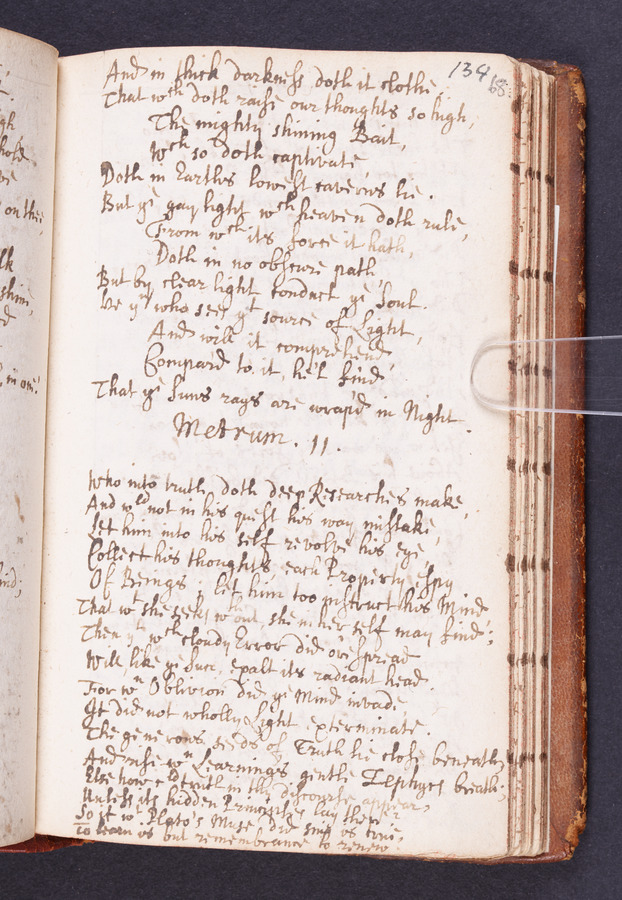 134 68
And in thick darkness doth it clothe,
That wch doth raise our thoughts so high,
The mighty shining Bait,
Wch so doth captivate
Doth in Earths lowest caverns lie.
But ye gay light wch heaven doth rule,
From wch its force it hath,
Doth in no obscure path
But by clear light conduct ye Soul.
He yt who sees yt source of Light,
And will it comprehend
Compard to it, he'l find
That ye Suns rays are wrap'd in Night.
Metrum. 11.
Who into truth doth deep Researches make,
And wld not in his quest his way mistake,
Let him into his self revolve his eye,
Collect his thoughts each Property espy
Of Beings; let him too instruct his Mind
That wt she seeks wthout, she in her self may find:
Then yt wch cloudy Error did o're spread
Will, like ye Sun, exalt its radiant head.
For wn Oblivion did ye Mind invade
It did not wholly Light exterminate.
The generous seeds of Truth lie close beneath,
And rise wn Learning's gentle Zephyrs breath;
Else how cld truth in thy discourse appear,
Unless its hidden Principles lay there?
So if wt Plato's Muse did sing os true,
To learn is but remembrance to renew.
on thee
shine,
in one!